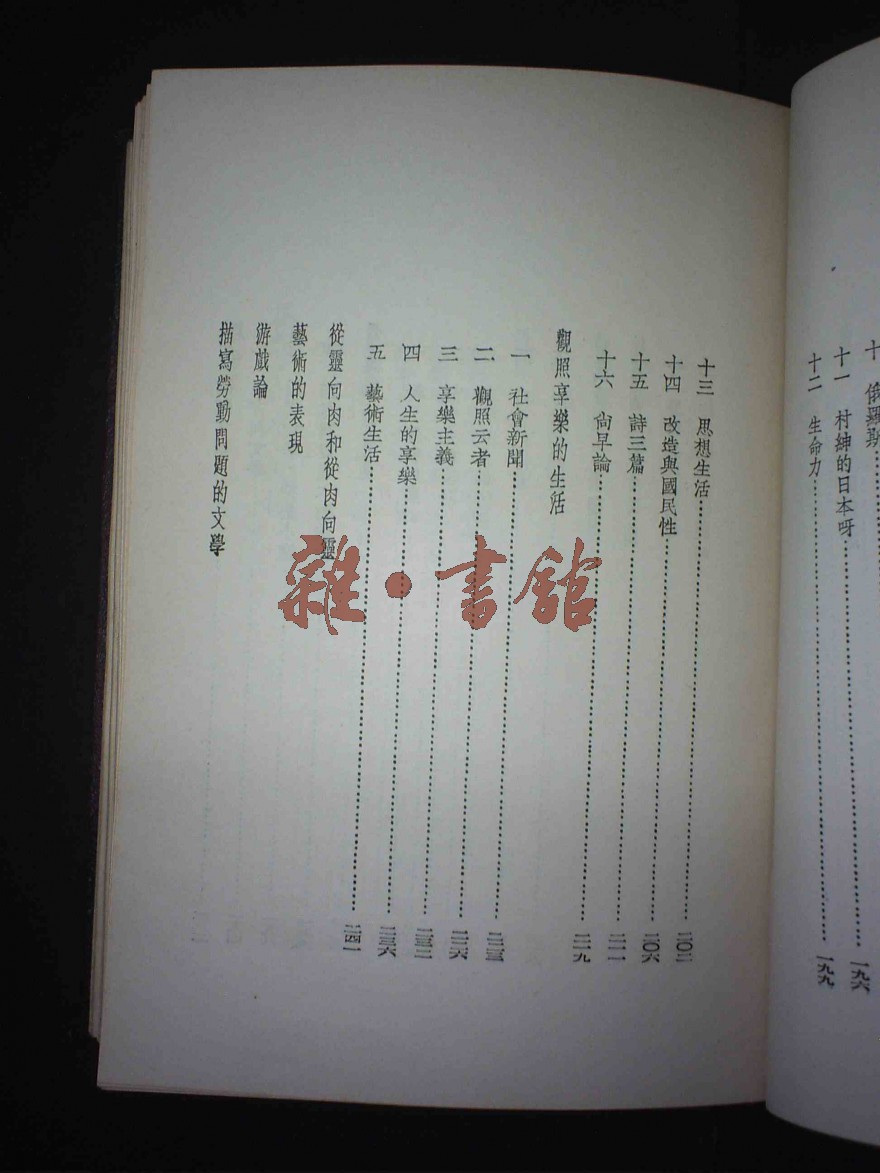 十 俄羅斯
十一 村紳的日本呀 一九六
十二 生命力 一九九
十三 思想生活 二〇二
十四 改造與國民性 二〇六
十五 詩三篇 二一一
十六 尙早論 二一九
觀照享樂的生活
一 社會新聞 二二三
二 觀照云者 二二六
三 享樂主義
四 人生的享樂 二三二
五 藝術生活
從靈向肉和從肉向靈
藝術的表現
游戲論
描寫勞動問題的文學
雜·書館